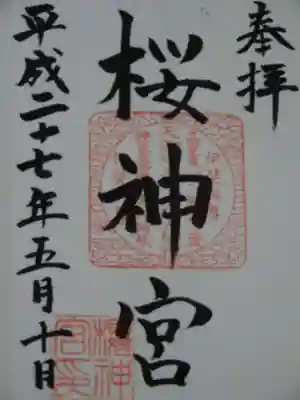 奉拝
桜神宮
平成二十七年五月十日